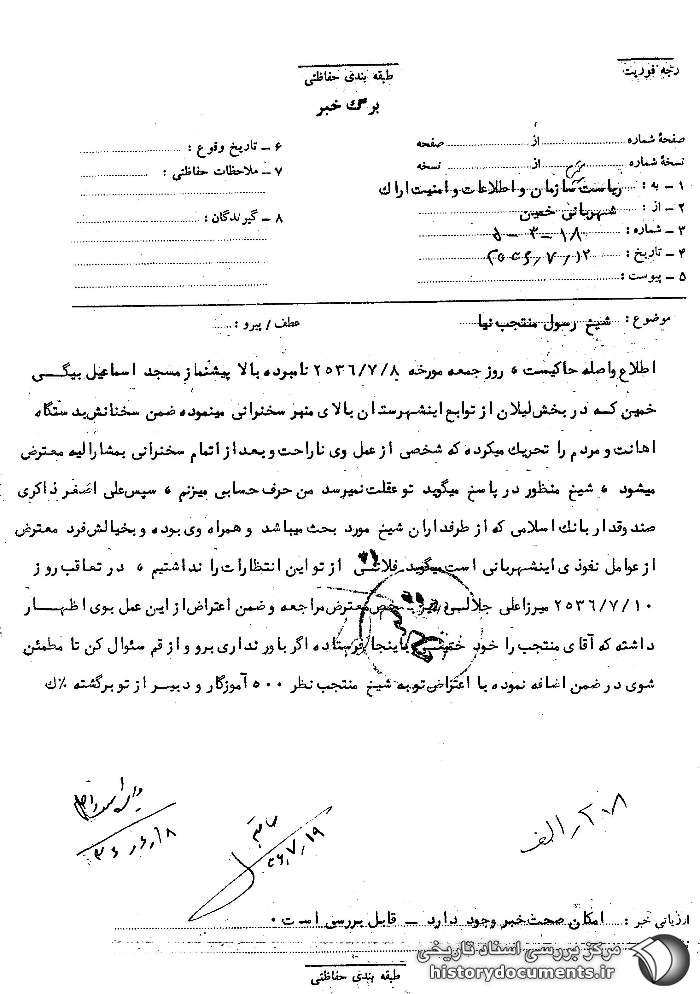 رجه فوریت
طبقه بندی حفاظتی
برگ خبر
صفحهٔ شماره از صفحه
نسخهٔ شماره از نسخه
۱ ـ به : ریاست سازمان و اطلاعات و امنیت اراك
۲ ـ از : شهربانی خمین
۳ ـ شماره : ۱۸ - ۳ - ۵
۴ ـ تاریخ : ۲۵۳۶/۷/۱۲
۵ ـ پیوست :
۶ ـ تاریخ وقوع :
۷ ـ ملاحظات حفاظتی :
۸ ـ گیرندگان :
موضوع : شیخ رسول منتجب نیا عطف / پیرو :
اطلاع واصله حاکیست ٥ روز جمعه مورخه ۲۵۳۶/۷/۸ نامبرده بالا پیشنماز مسجد اسماعیل بیگی
خمین که در بخش لیلان از توابع اینشهرستان بالای منبر سخنرانی مینموده ضمن سخنانش بدستگاه
اهانت و مردم را تحریك میکرده که شخصی از عمل وی ناراحت و بعد از اتمام سخنرانی بمشارالیه معترض
میشود ٥ شیخ منظور در پاسخ میگوید تو عقلت نمیرسد من حرف حسابی میزنم ٥ سپس علی اصغر ذاکری
صندوقدار بانك اسلامی که از طرفداران شیخ مورد بحث میباشد و همراه وی بوده و بخیالش فرد معترض
از عوامل نفوذی اینشهربانی است میگوید فلانی از تو این انتظارات را نداشتیم ٥ در تعاقب روز
۲۵۳۶/۷/۱۰ میرزاعلی جلالی نیز معترض مراجعه و ضمن اعتراض از این عمل بوی اظهار
داشته که آقای منتجب را خود باینجا فرستاده اگر باور نداری برو و از قم سئوال کن تا مطمئن
شوی در ضمن اضافه نموده با اعتراض تو به شیخ منتجب نظر ۵۰۰ آموزگار و دبیر از تو برگشته ٪ك
۲۰۸ الف
۳۶/۷/۱۹
ارزیابی خبر : امکان صحت خبر وجود دارد ـ قابل بررسی است ٠
طبقه بندی حفاظتی
مرکز بررسی اسناد تاریخی
historydocuments.ir